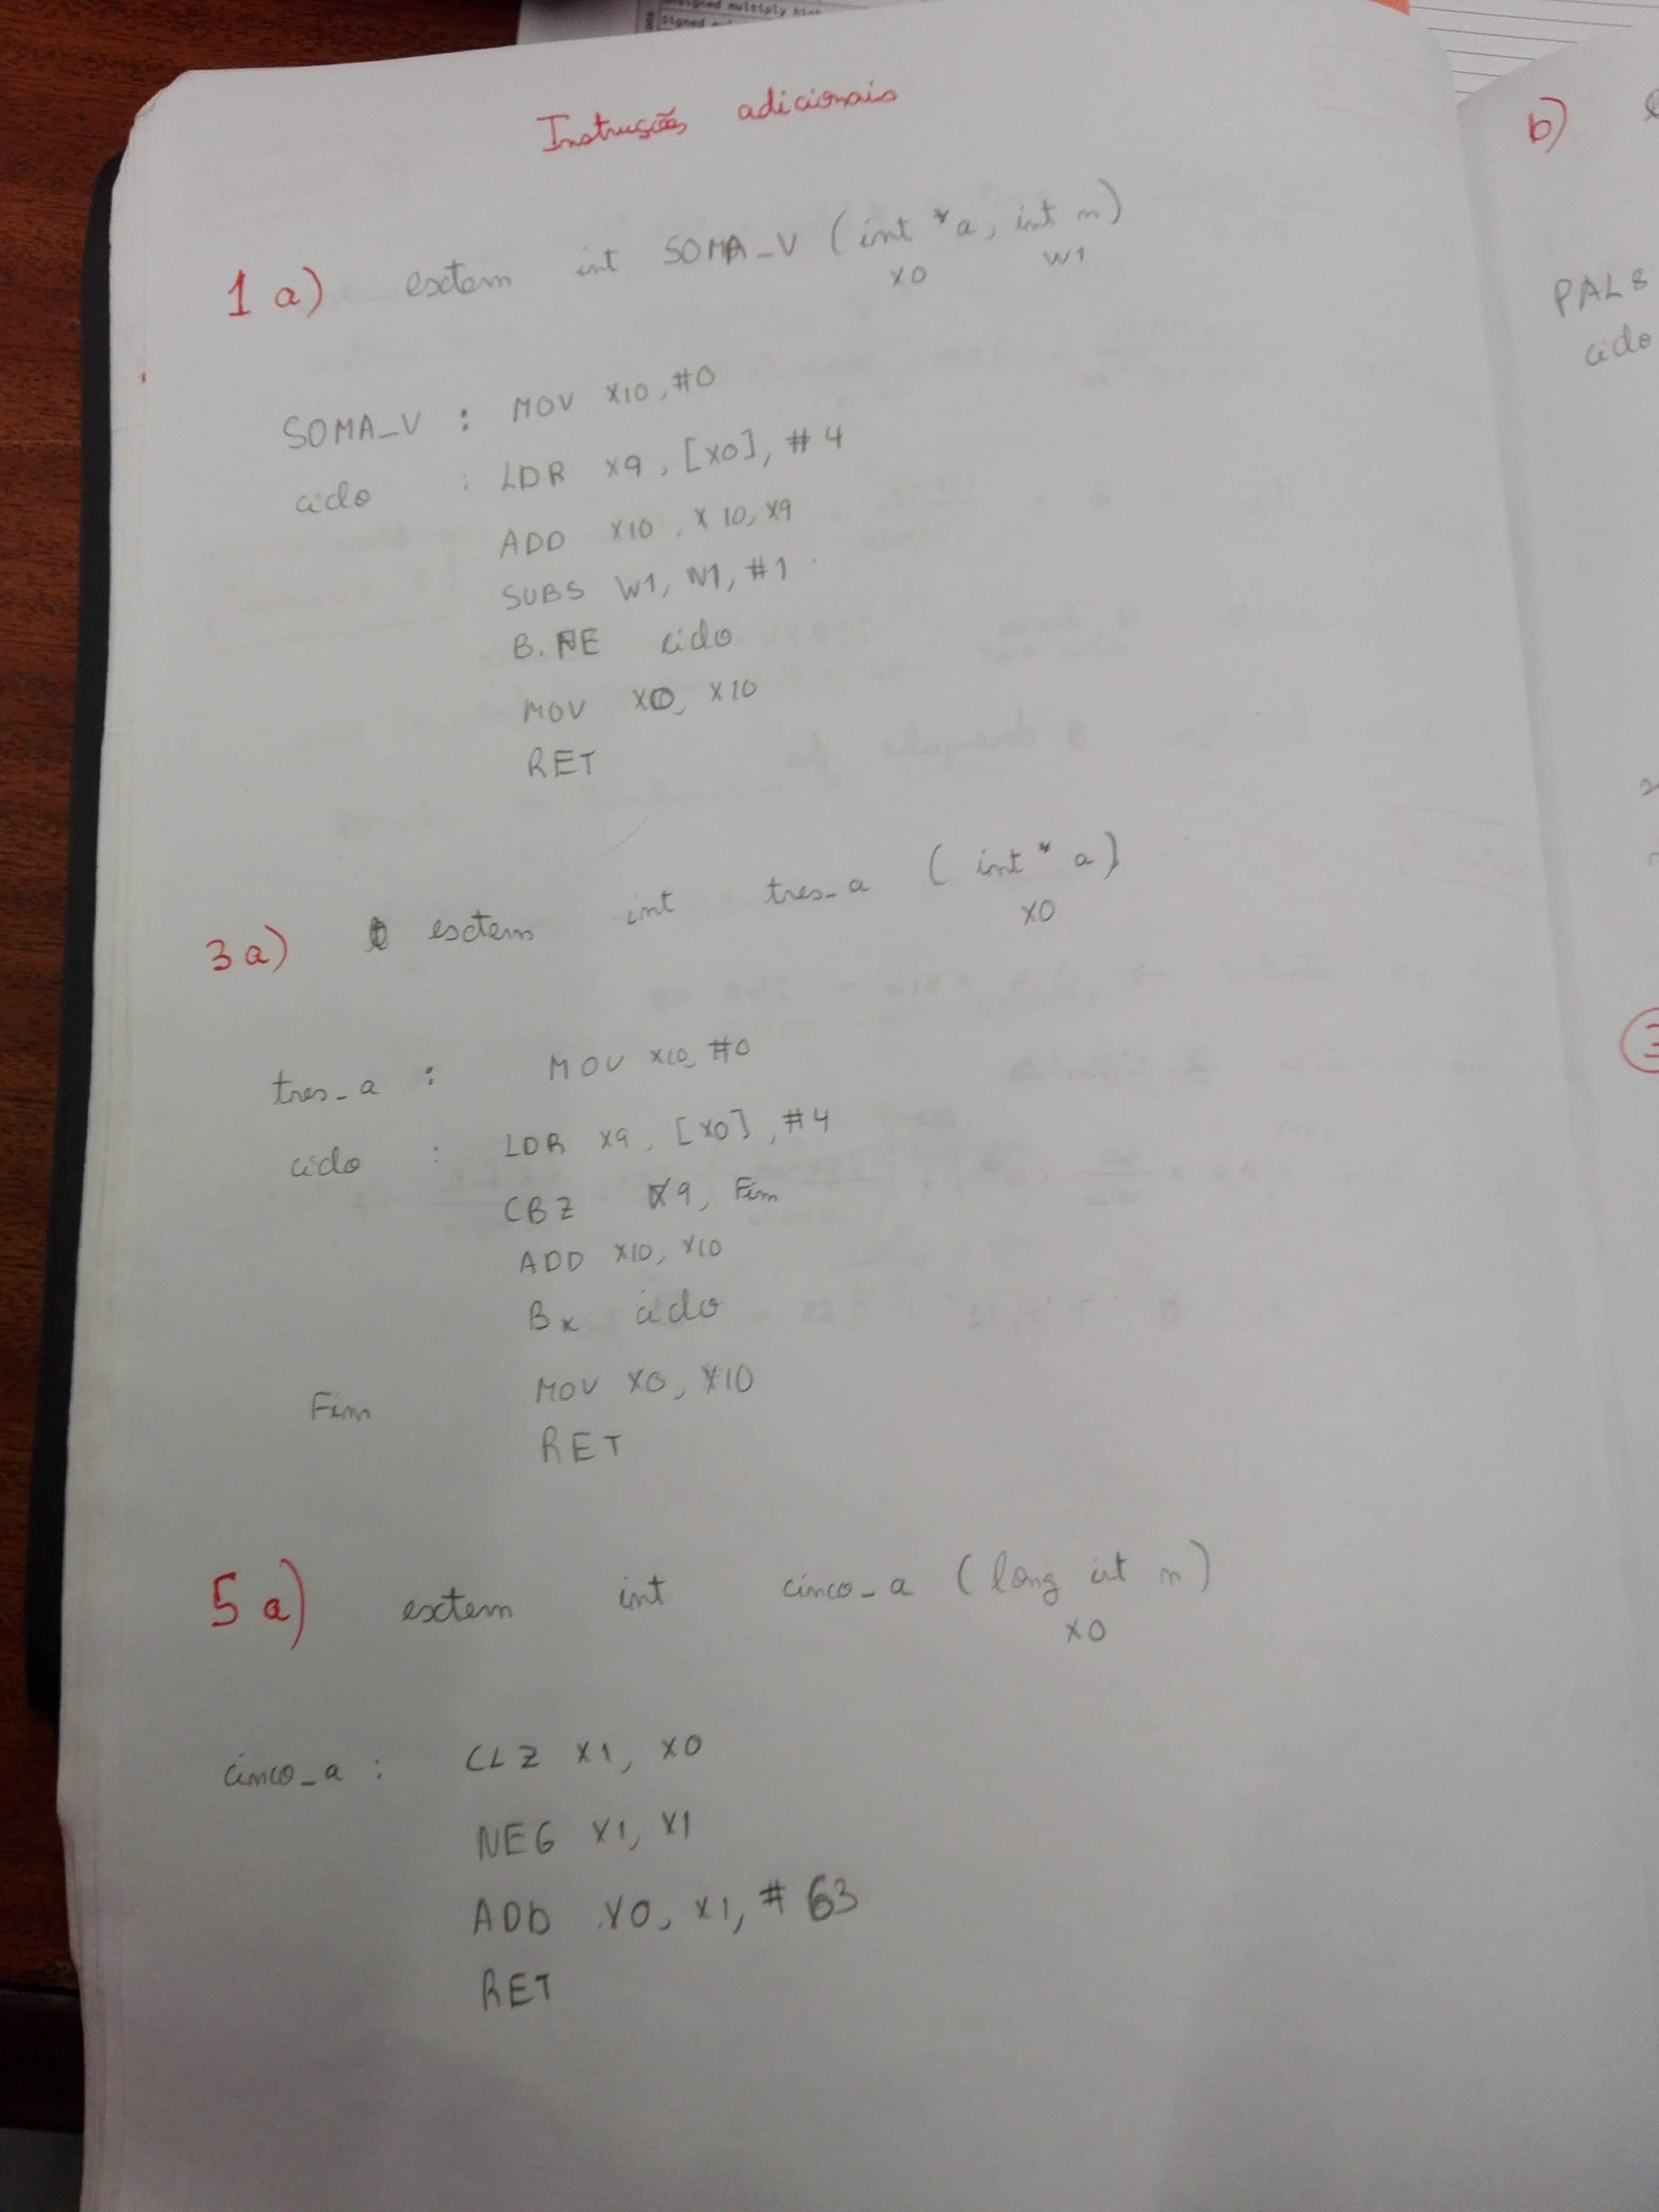 signed multiply
Signed
Instruções adicionais
1 a) extern int SOMA_V (int *a, int n)
X0 W1
SOMA_V : MOV X10, #0
ciclo : LDR X9, [X0], #4
ADD X10, X10, X9
SUBS W1, W1, #1
B.NE ciclo
MOV X0, X10
RET
3 a) extern int tres_a (int * a)
X0
tres_a : MOV X10, #0
ciclo : LDR X9, [X0], #4
CBZ X9, Fim
ADD X10, X10
B ciclo
Fim MOV X0, X10
RET
5 a) extern int cinco_a (long int n)
X0
cinco_a : CLZ X1, X0
NEG X1, X1
ADD X0, X1, #63
RET
b)
PAL8
ciclo
3